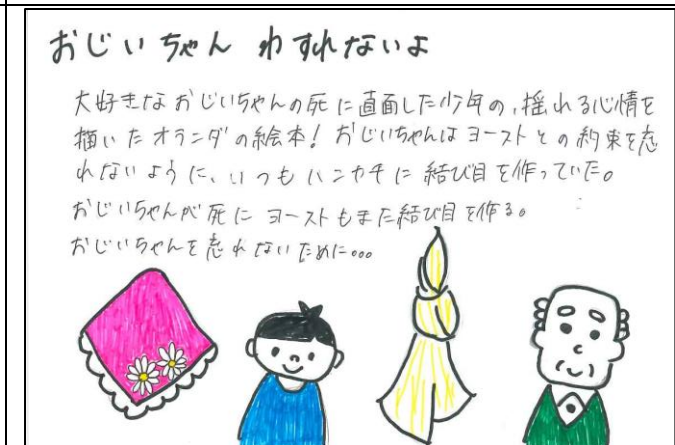 おじいちゃん わすれないよ
大好きなおじいちゃんの死に直面した少年の,揺れる心情を
描いたオランダの絵本!おじいちゃんはヨーストとの約束を忘
れないように、いつもハンカチに結び目を作っていた。
おじいちゃんが死にヨーストもまた結び目を作る。
おじいちゃんを忘れないために...